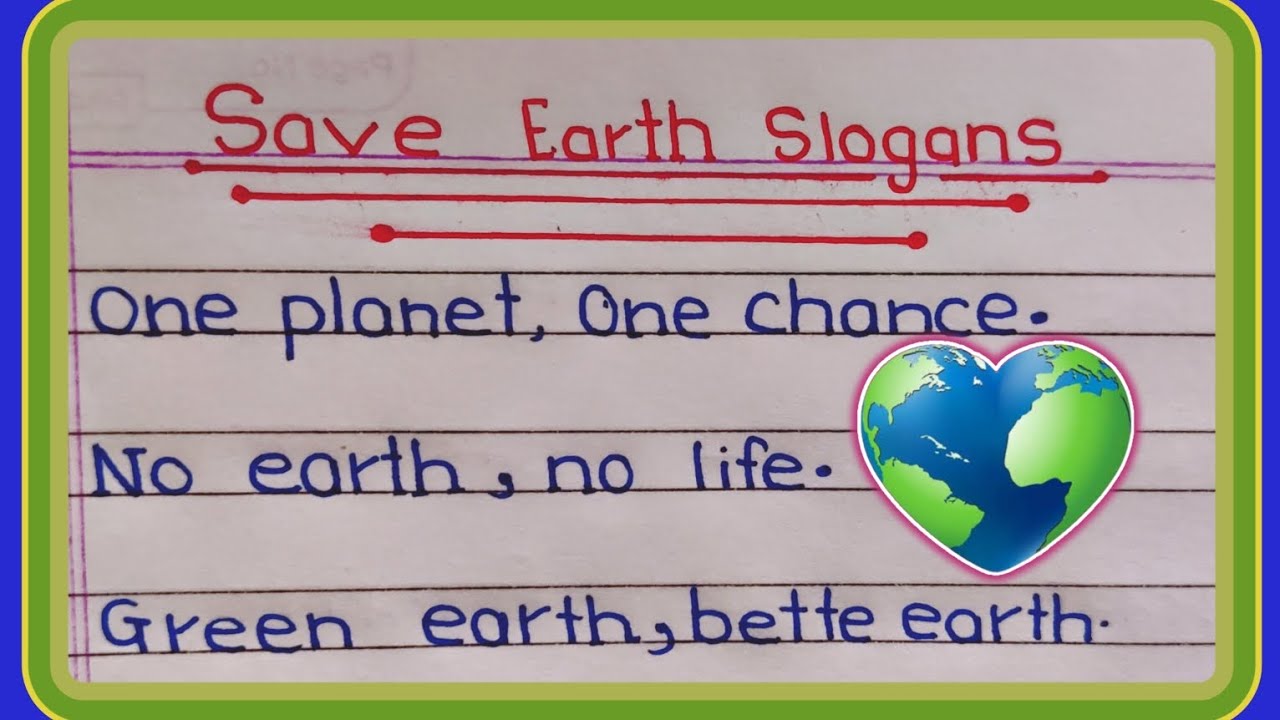 Save Earth Slogans
One planet, One chance.
No earth, no life.
Green earth, bette earth.